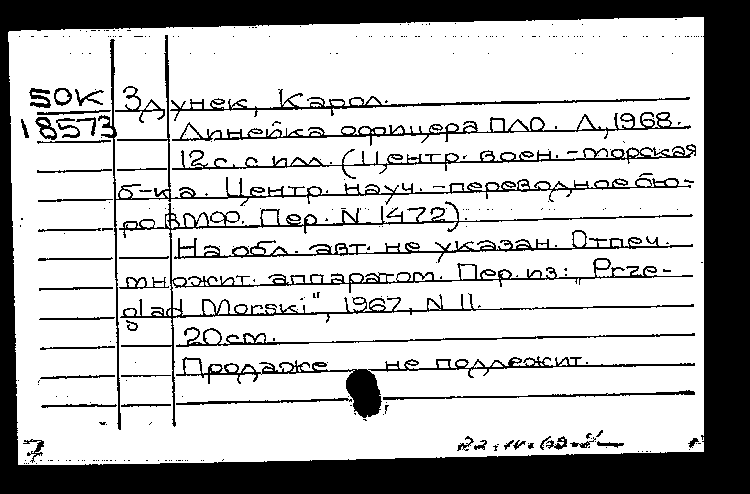 50К Здунек, Карол.
18573 Линейка офицера ПЛО. Л., 1968.
12 с. с илл. (Центр. воен.-морская
б-ка. Центр. науч.-переводное бю-
ро ВМФ. Пер. N 1472).
На обл. авт. не указан. Отпеч.
множит. аппаратом. Пер. из: "Prze-
glad Morski", 1967, N 11.
20 см.
Продаже не подлежит.
7